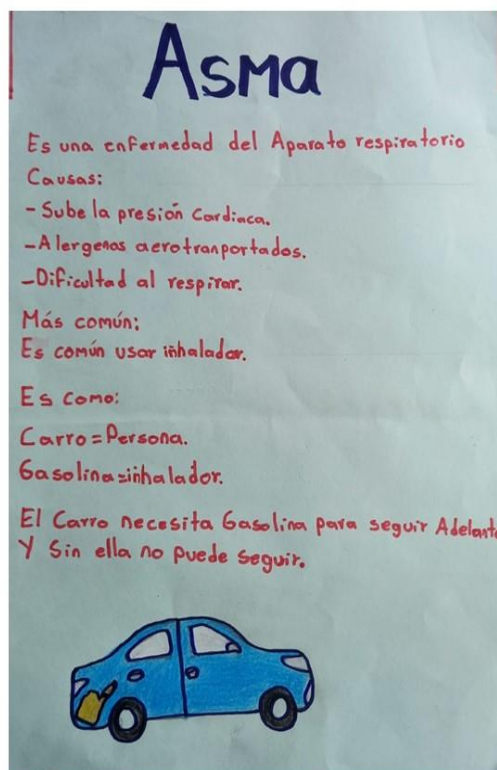 Asma
Es una enfermedad del Aparato respiratorio
Causas:
- Sube la presión Cardiaca.
- Alergenos aerotranportados.
- Dificultad al respirar.
Más común:
Es común usar inhalador.
Es como:
Carro = Persona.
Gasolina = inhalador.
El Carro necesita Gasolina para seguir Adelante
Y Sin ella no puede seguir.